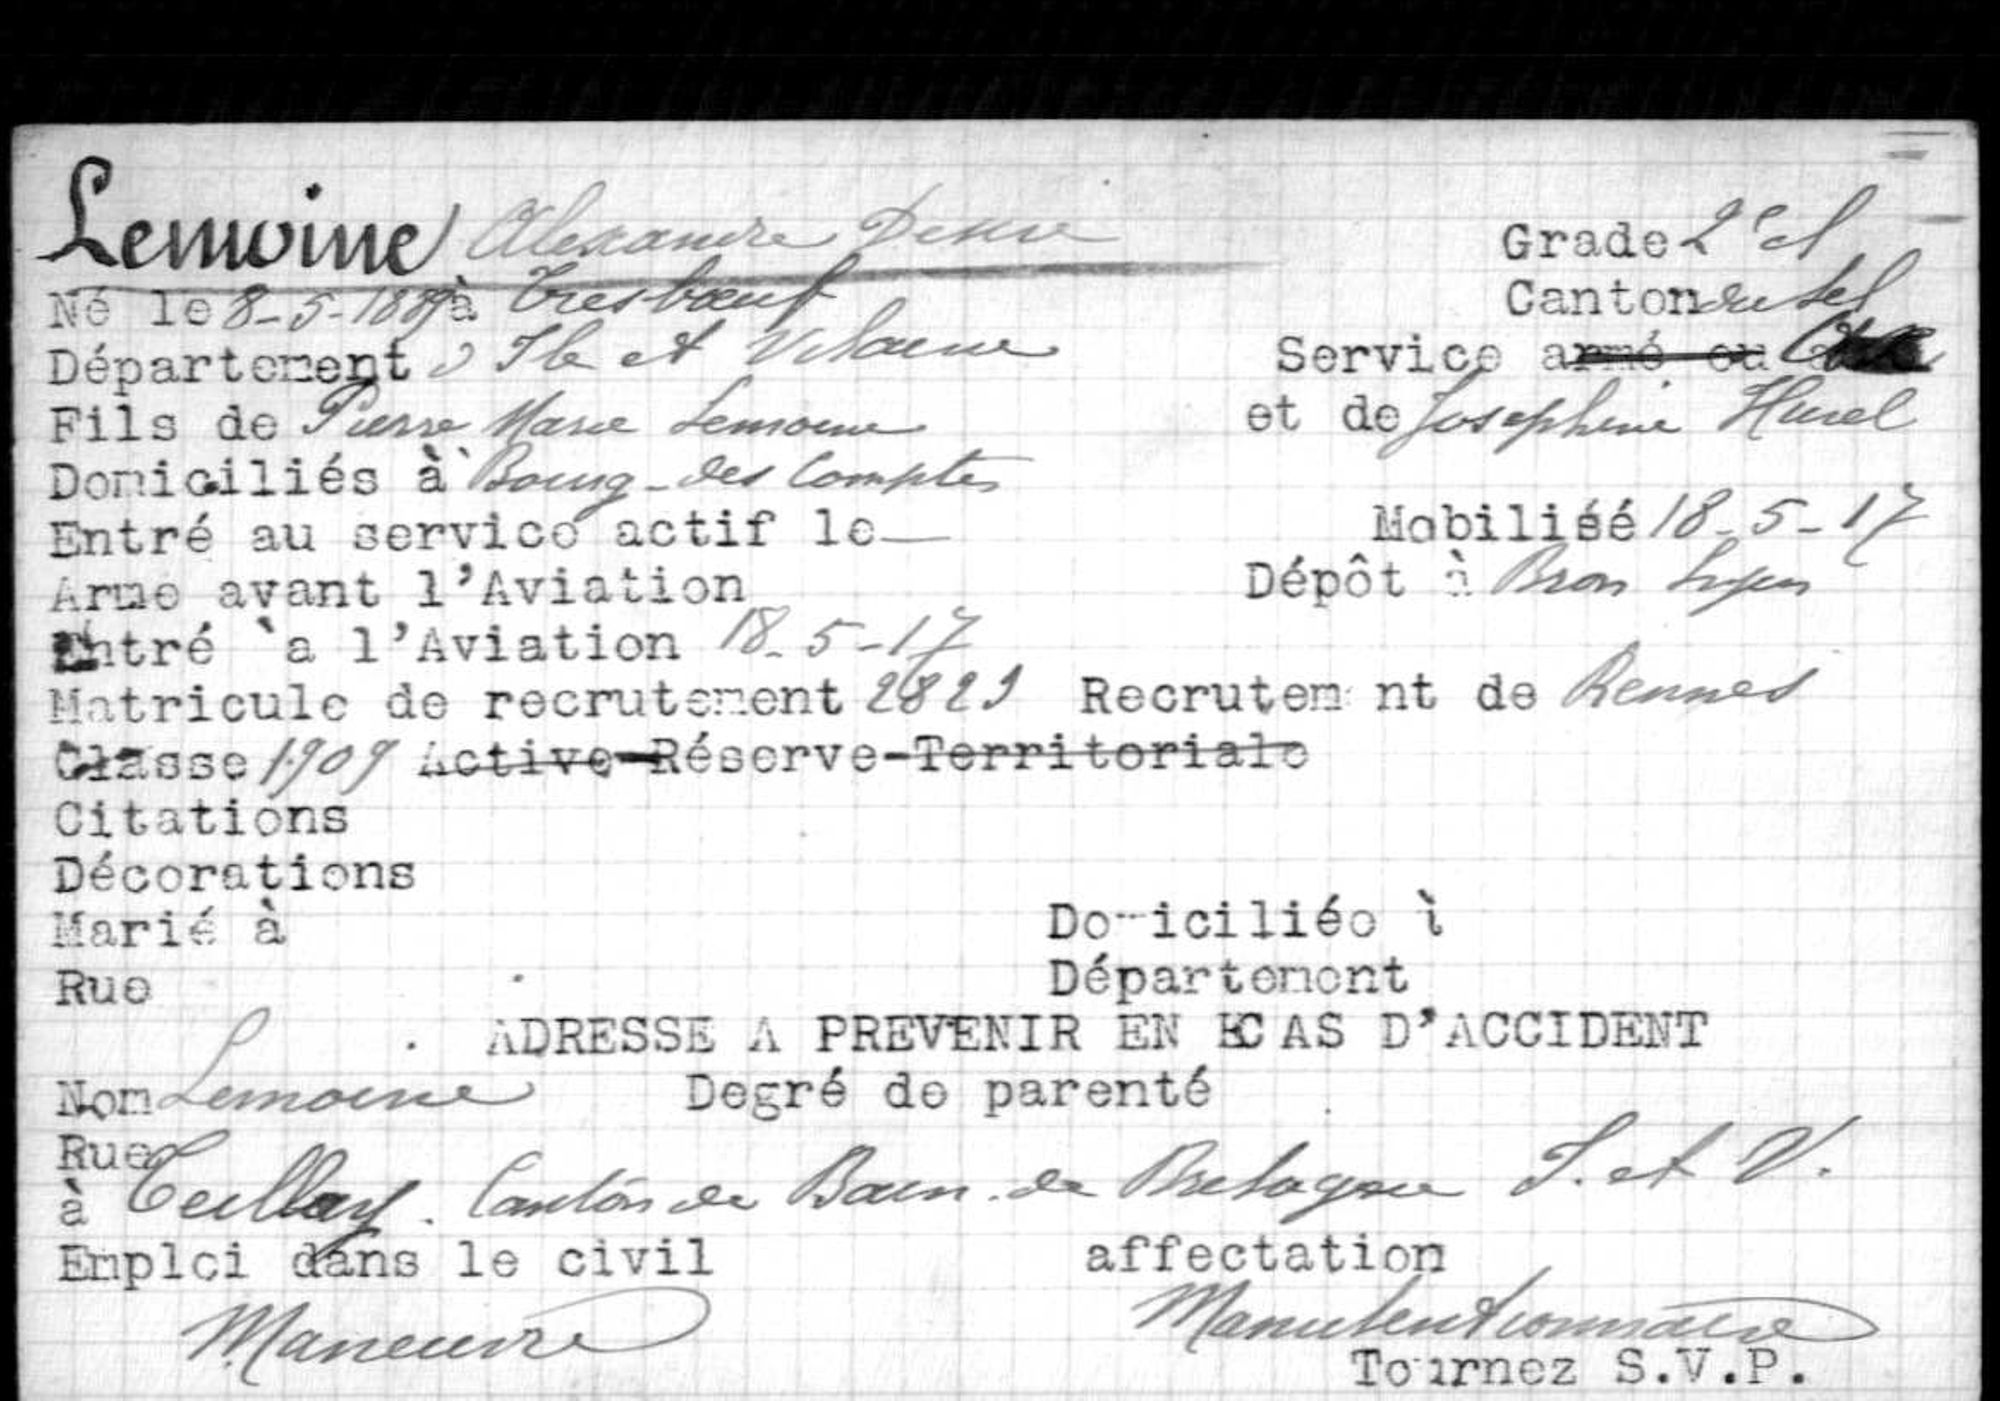 Lemoine Alexandre Désiré Grade 2e cl
Né le 8-5-1889 à Tresbœuf Canton du Sel
Département d'Ile et Vilaine Service armé ou
Fils de Pierre Marie Lemoine et de Josephine Hurel
Domiciliés à Bourg-des Comptes
Entré au service actif le — Mobilisé 18-5-17
Arme avant l'Aviation Dépôt à Bron Lyon
Entré `a l'Aviation 18-5-17
Matricule de recrutement 2829 Recrutem nt de Rennes
Classe 1909 Active-Réserve-Territoriale
Citations
Décorations
Marié à Domiciliée à
Rue Département
ADRESSE A PREVENIR EN CAS D'ACCIDENT
Nom Lemoine Degré de parenté
Rue
à Teillay. Canton de Bain-de Bretagne I. et V.
Emploi dans le civil affectation
Maneuvre Manutentionnaire
Tournez S.V.P.